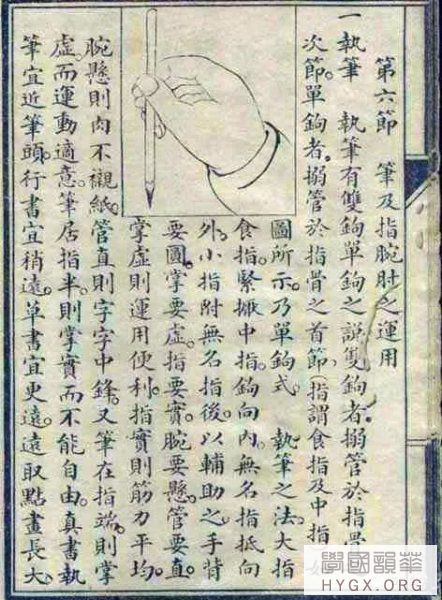 第六節　筆及指腕肘之運用
一執筆　執筆有雙鉤單鉤之説雙鉤者。搦管於指骨
次節單鉤者。搦管於指骨之首節。指謂食指及中指
圖所示。乃單鉤式　執筆之法。大指
食指。緊撳中指。鉤向內。無名指抵向
外。小指附無名指後。以輔助之。手背
要圓。掌要虛。指要實。腕要懸。管要直。
掌虛則運用便利。指實則筋力平均。
腕懸則肉不襯紙。管直則字字中鋒。又筆在指端。則掌
虛。而運動適意。筆居指半。則掌實而不能自由。真書執
筆宜近筆頭。行書宜稍遠。草書宜更遠。遠取點畫長大。
學國韻華
HYGX.ORG